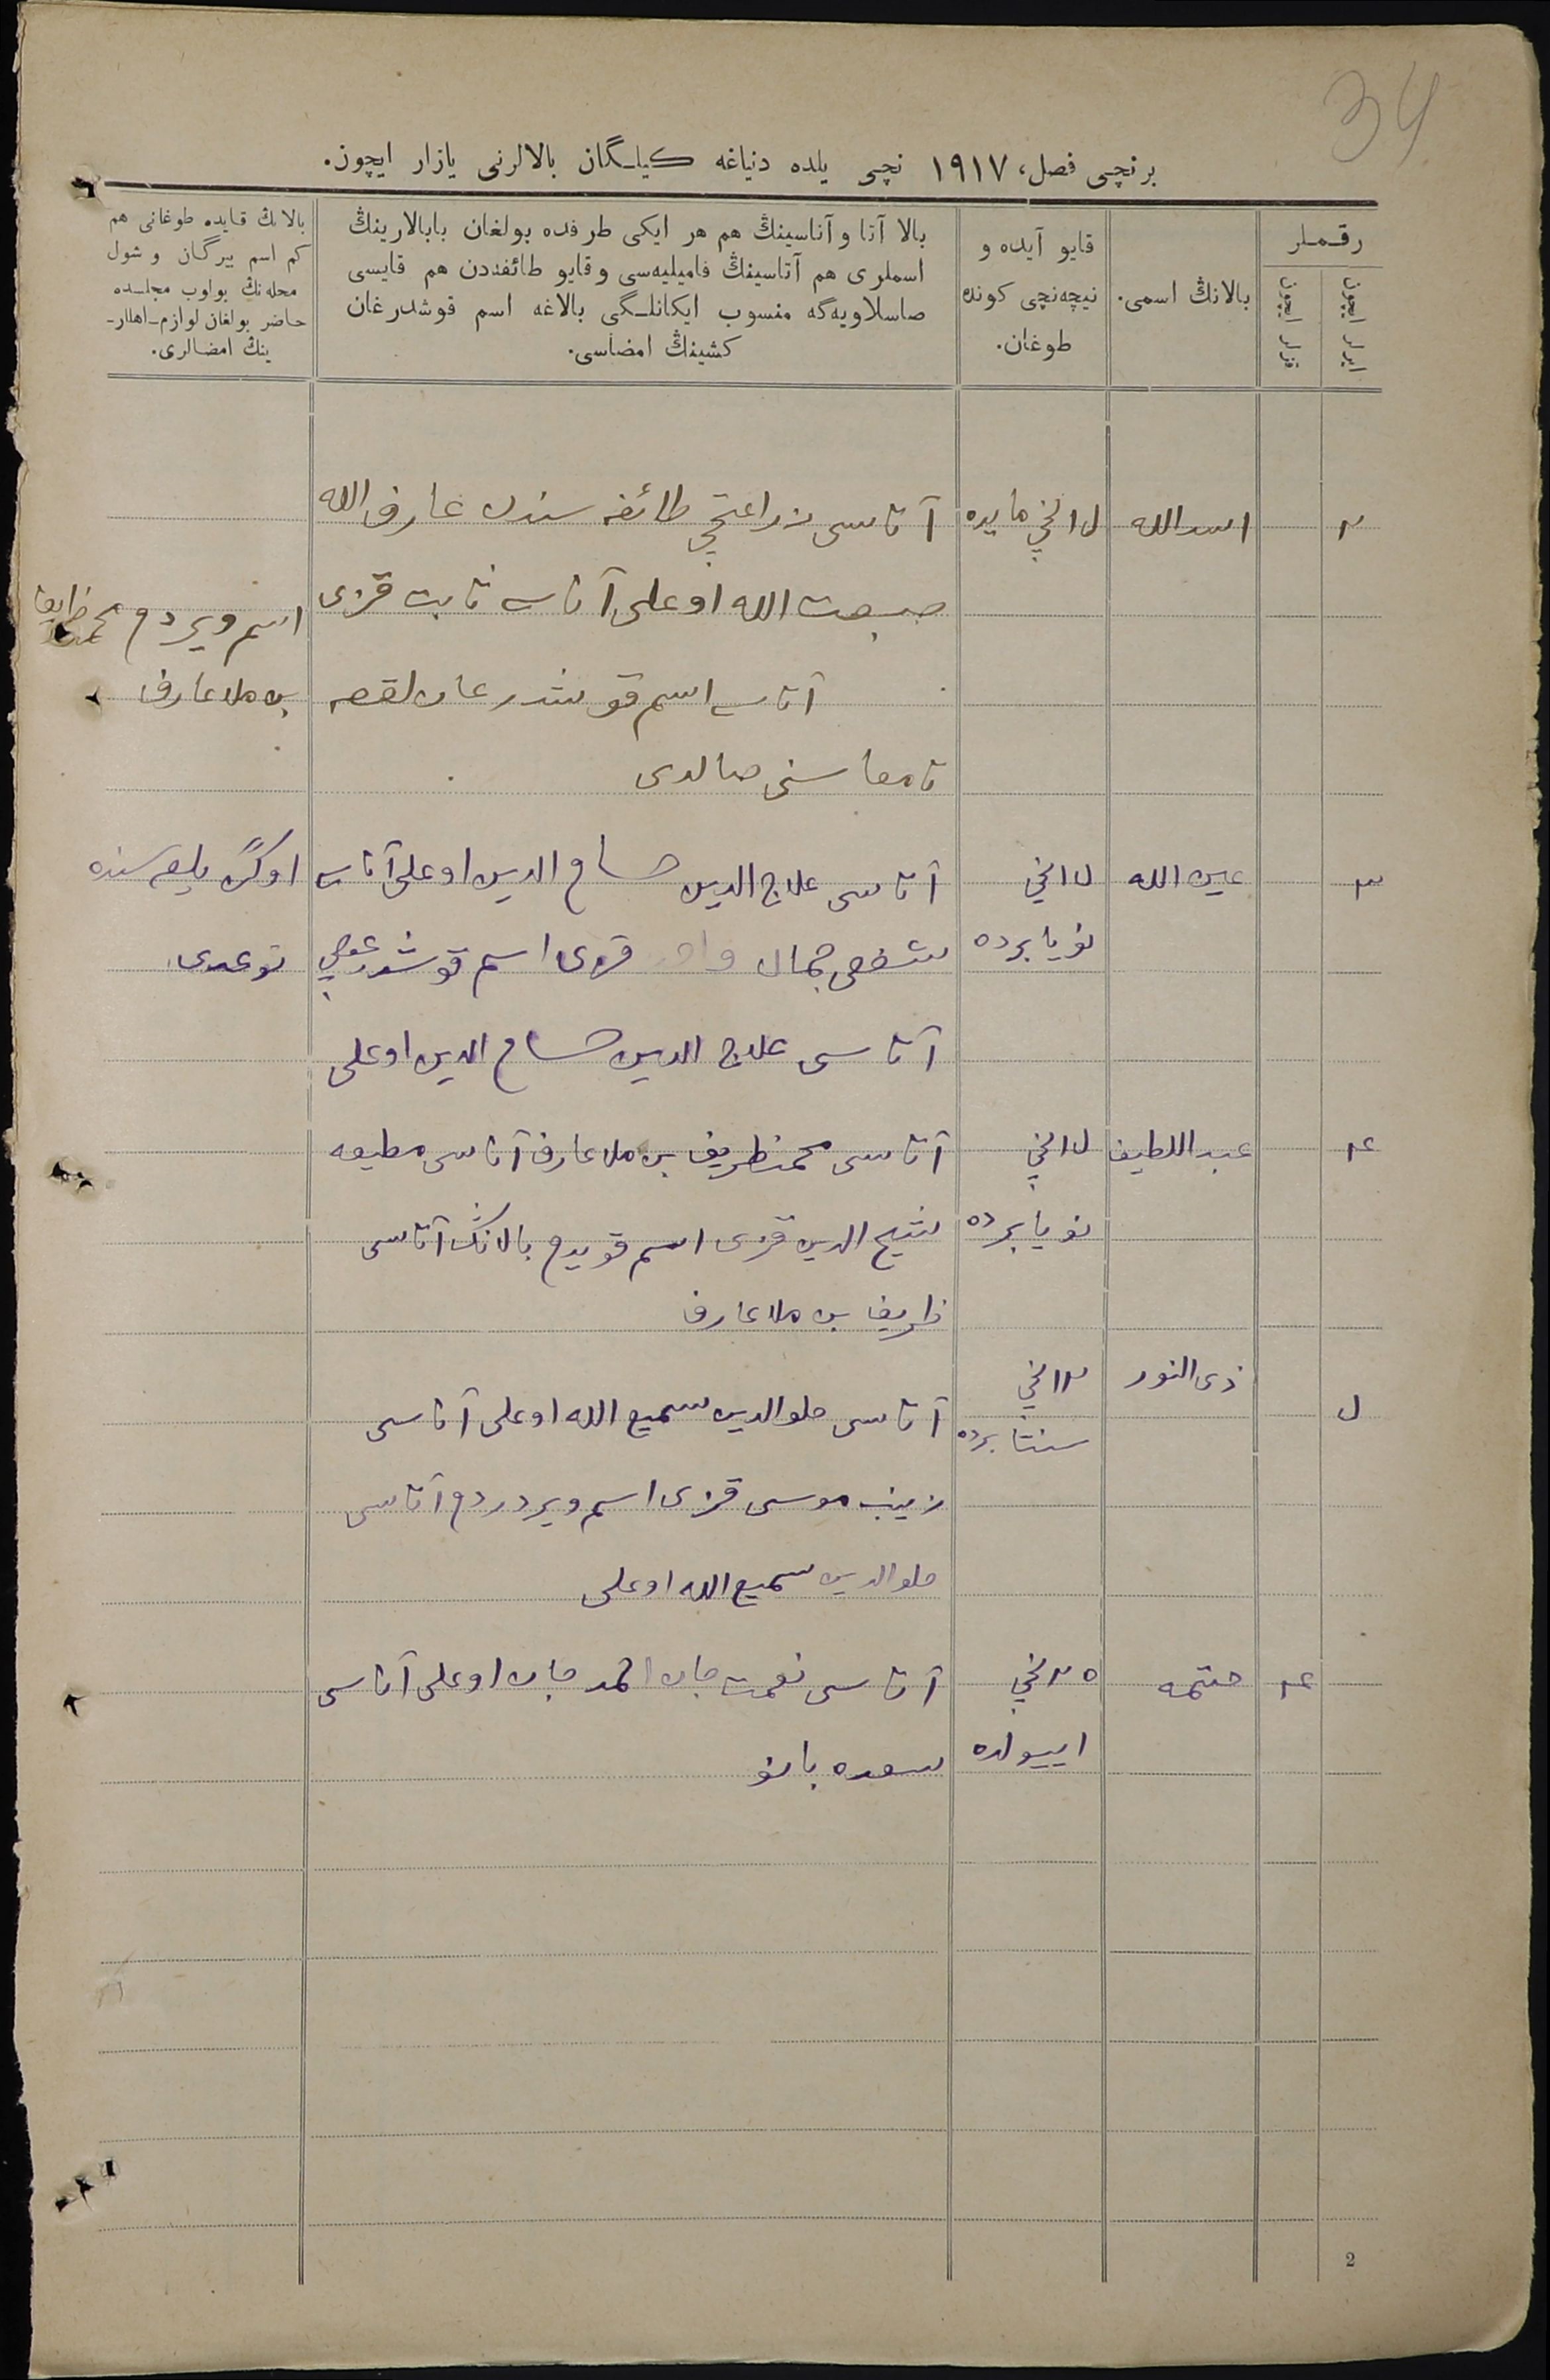 34
برنچی فصل، ١٩١٧ نچی یلده دنیاغه کیلـگان بالالرنی یازار ایچون.
رقـملر
ایرلر ایچون
قزلر ایچون
بالانڭ اسمی.
قایو آیده و
نیچه‌نچی کونده
طوغان.
بالا آتا و آناسینڭ هم هر ایکی طرفده بولغان بابالارینڭ
اسملری هم آتاسینڭ فامیلیه‌سی و قایو طائفه‌دن هم قایسی
صاسلاویه‌گه منسوب ایکانلـگی بالاغه اسم قوشدرغان
کشینڭ امضاسی.
بالانڭ قایده طوغانی هم
کم اسم بیرگان و شول
محله‌نڭ بولوب مجلـده
حاضر بولغان لوازم-اهللر-
ینڭ امضالری.
٢
اسدالله
١٥نچی مایده
آتاسی زراعتچی طائفه سندن عارف الله
صبعت الله اوغلی آناسی ثابت قزی
آتاسی اسم قوشدرغان
تامغاسنی صالدی
اسم ویردم محمدظریف
بن ملا عارف
٣
عین الله
١٥نچی
نویابرده
آتاسی علاج الدین حسام الدین اوغلی آناسی
جمال قزی اسم قوشدرغوچی
آتاسی علاج الدین حسام الدین اوغلی
توغدی
۴
عبداللطیف
١٥نچی
نویابرده
آتاسی محمدظریف بن ملا عارف آناسی مطیعه
شیخ الدین قزی اسم قویدم بالانڭ آتاسی
ظریف بن ملا عارف
۵
ذی النور
١٢نچی
سنتابرده
آتاسی جلوالدین سمیع الله اوغلی آناسی
زینب موسی قزی اسم ویردردم آتاسی
جلوالدین سمیع الله اوغلی
۴
ختمه
٢٥نچی
اییولده
آتاسی نعمت جان احمد جان اوغلی آناسی
سعده بانو
2